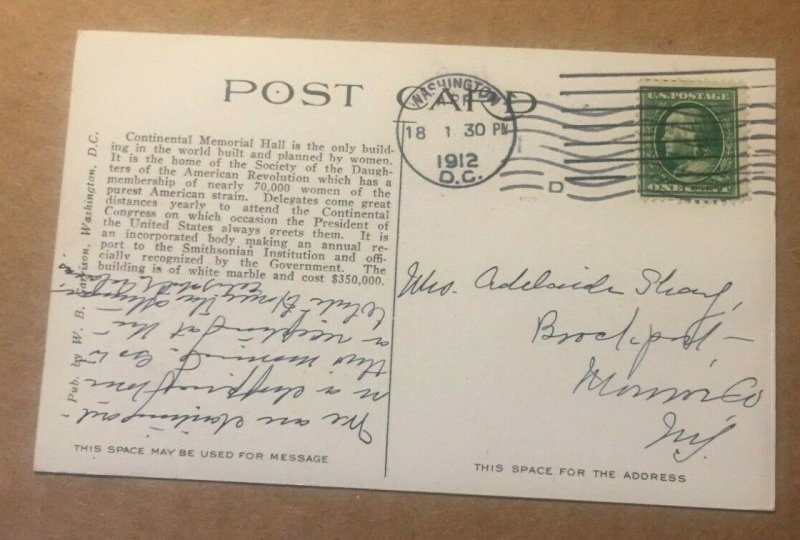 POST CARD
WASHINGTON
APR
18 1 30 PM
1912
D.C.
D
U.S. POSTAGE
ONE CENT
Continental Memorial Hall is the only build-
ing in the world built and planned by women.
It is the home of the Society of the Daugh-
ters of the American Revolution which has a
membership of nearly 70,000 women of the
purest American strain. Delegates come great
distances yearly to attend the Continental
Congress on which occasion the President of
the United States always greets them. It is
an incorporated body making an annual re-
port to the Smithsonian Institution and offi-
cially recognized by the Government. The
building is of white marble and cost $350,000.
Pub. by W. B. Garrison, Washington, D.C.
We are
on a shopping
this morning. Go to
a reception at the
White House this
THIS SPACE MAY BE USED FOR MESSAGE
Mrs. Adelaide
Brockport
Monroe Co
N.Y.
THIS SPACE FOR THE ADDRESS